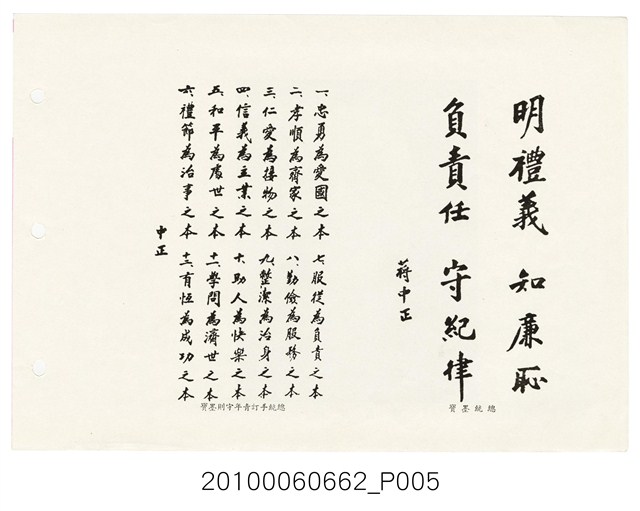 明禮義 知廉恥
負責任 守紀律
蔣中正
總統墨寶
一、忠勇為愛國之本
二、孝順為齊家之本
三、仁愛為接物之本
四、信義為立業之本
五、和平為處世之本
六、禮節為治事之本
七、服從為負責之本
八、勤儉為服務之本
九、整潔為治身之本
十、助人為快樂之本
十一、學問為濟世之本
十二、有恆為成功之本
中正
總統手訂青年守則墨寶
20100060662_P005